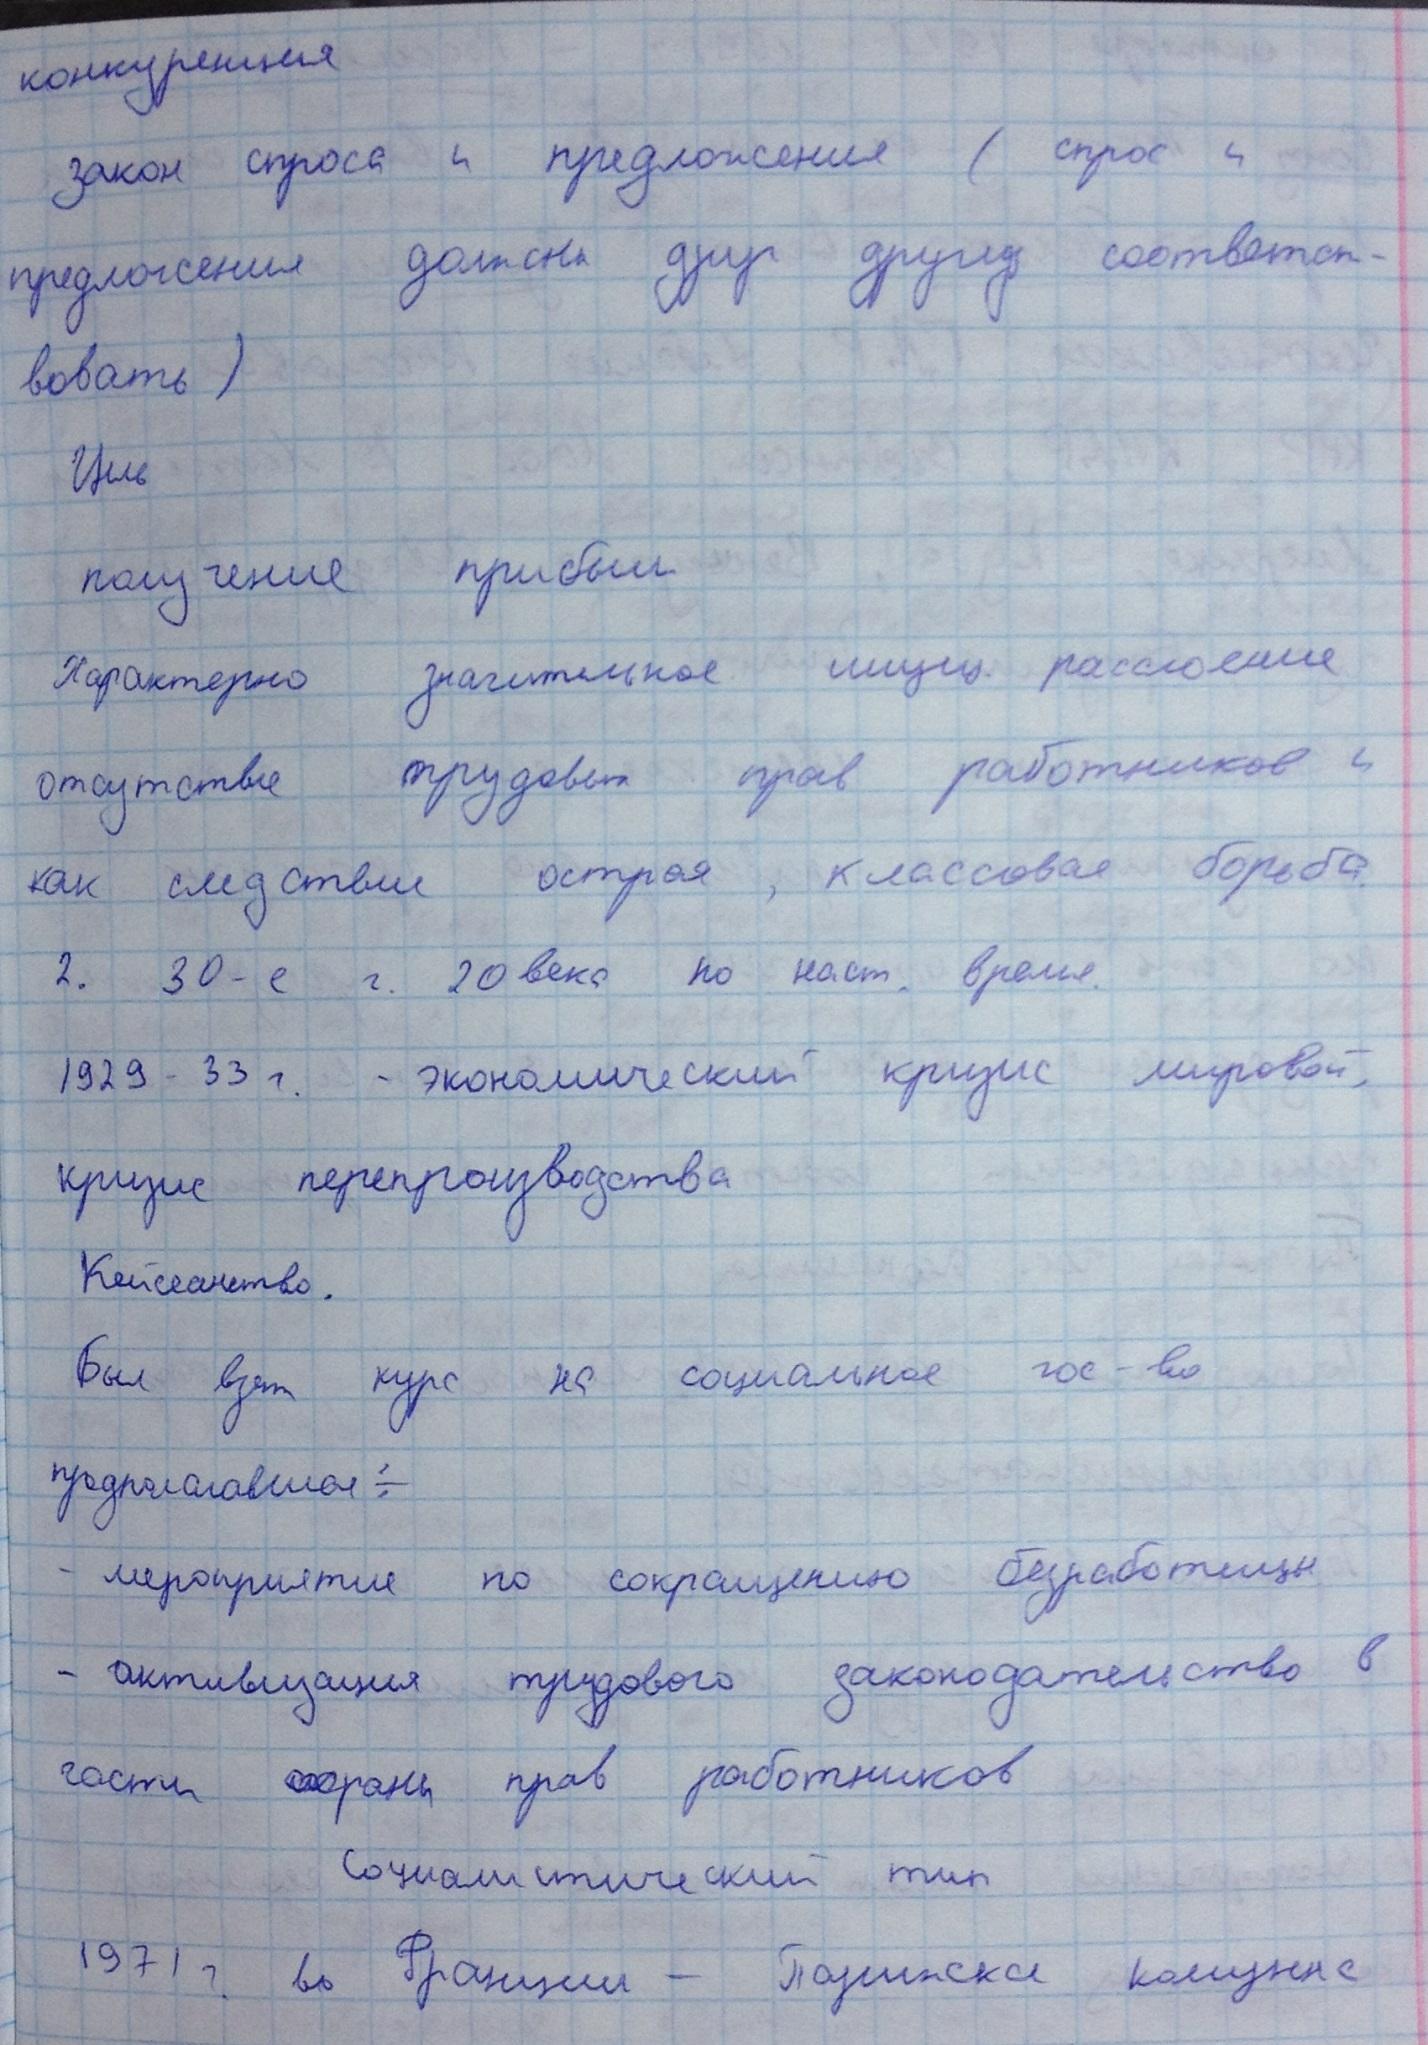 конкуренция
закон спроса и предложения ( спрос и
предложения должны друг другу соответст-
вовать )
Цель
получение прибыли
Характерно значительное имущ. расслоение
отсутствие трудовых прав работников и
как следствие острая , классовая борьба.
2. 30-е г. 20 века по наст. время.
1929 - 33 г. - экономический кризис мировой,
кризис перепроизводства
Кейсеанство.
Был взят курс на социальное гос-во
предполагавшая :-
- мероприятие по сокращению безработицы
- активизация трудового законодательство в
части охраны прав работников
Социалистический тип
1971 г. во Франции - Парижска комунна